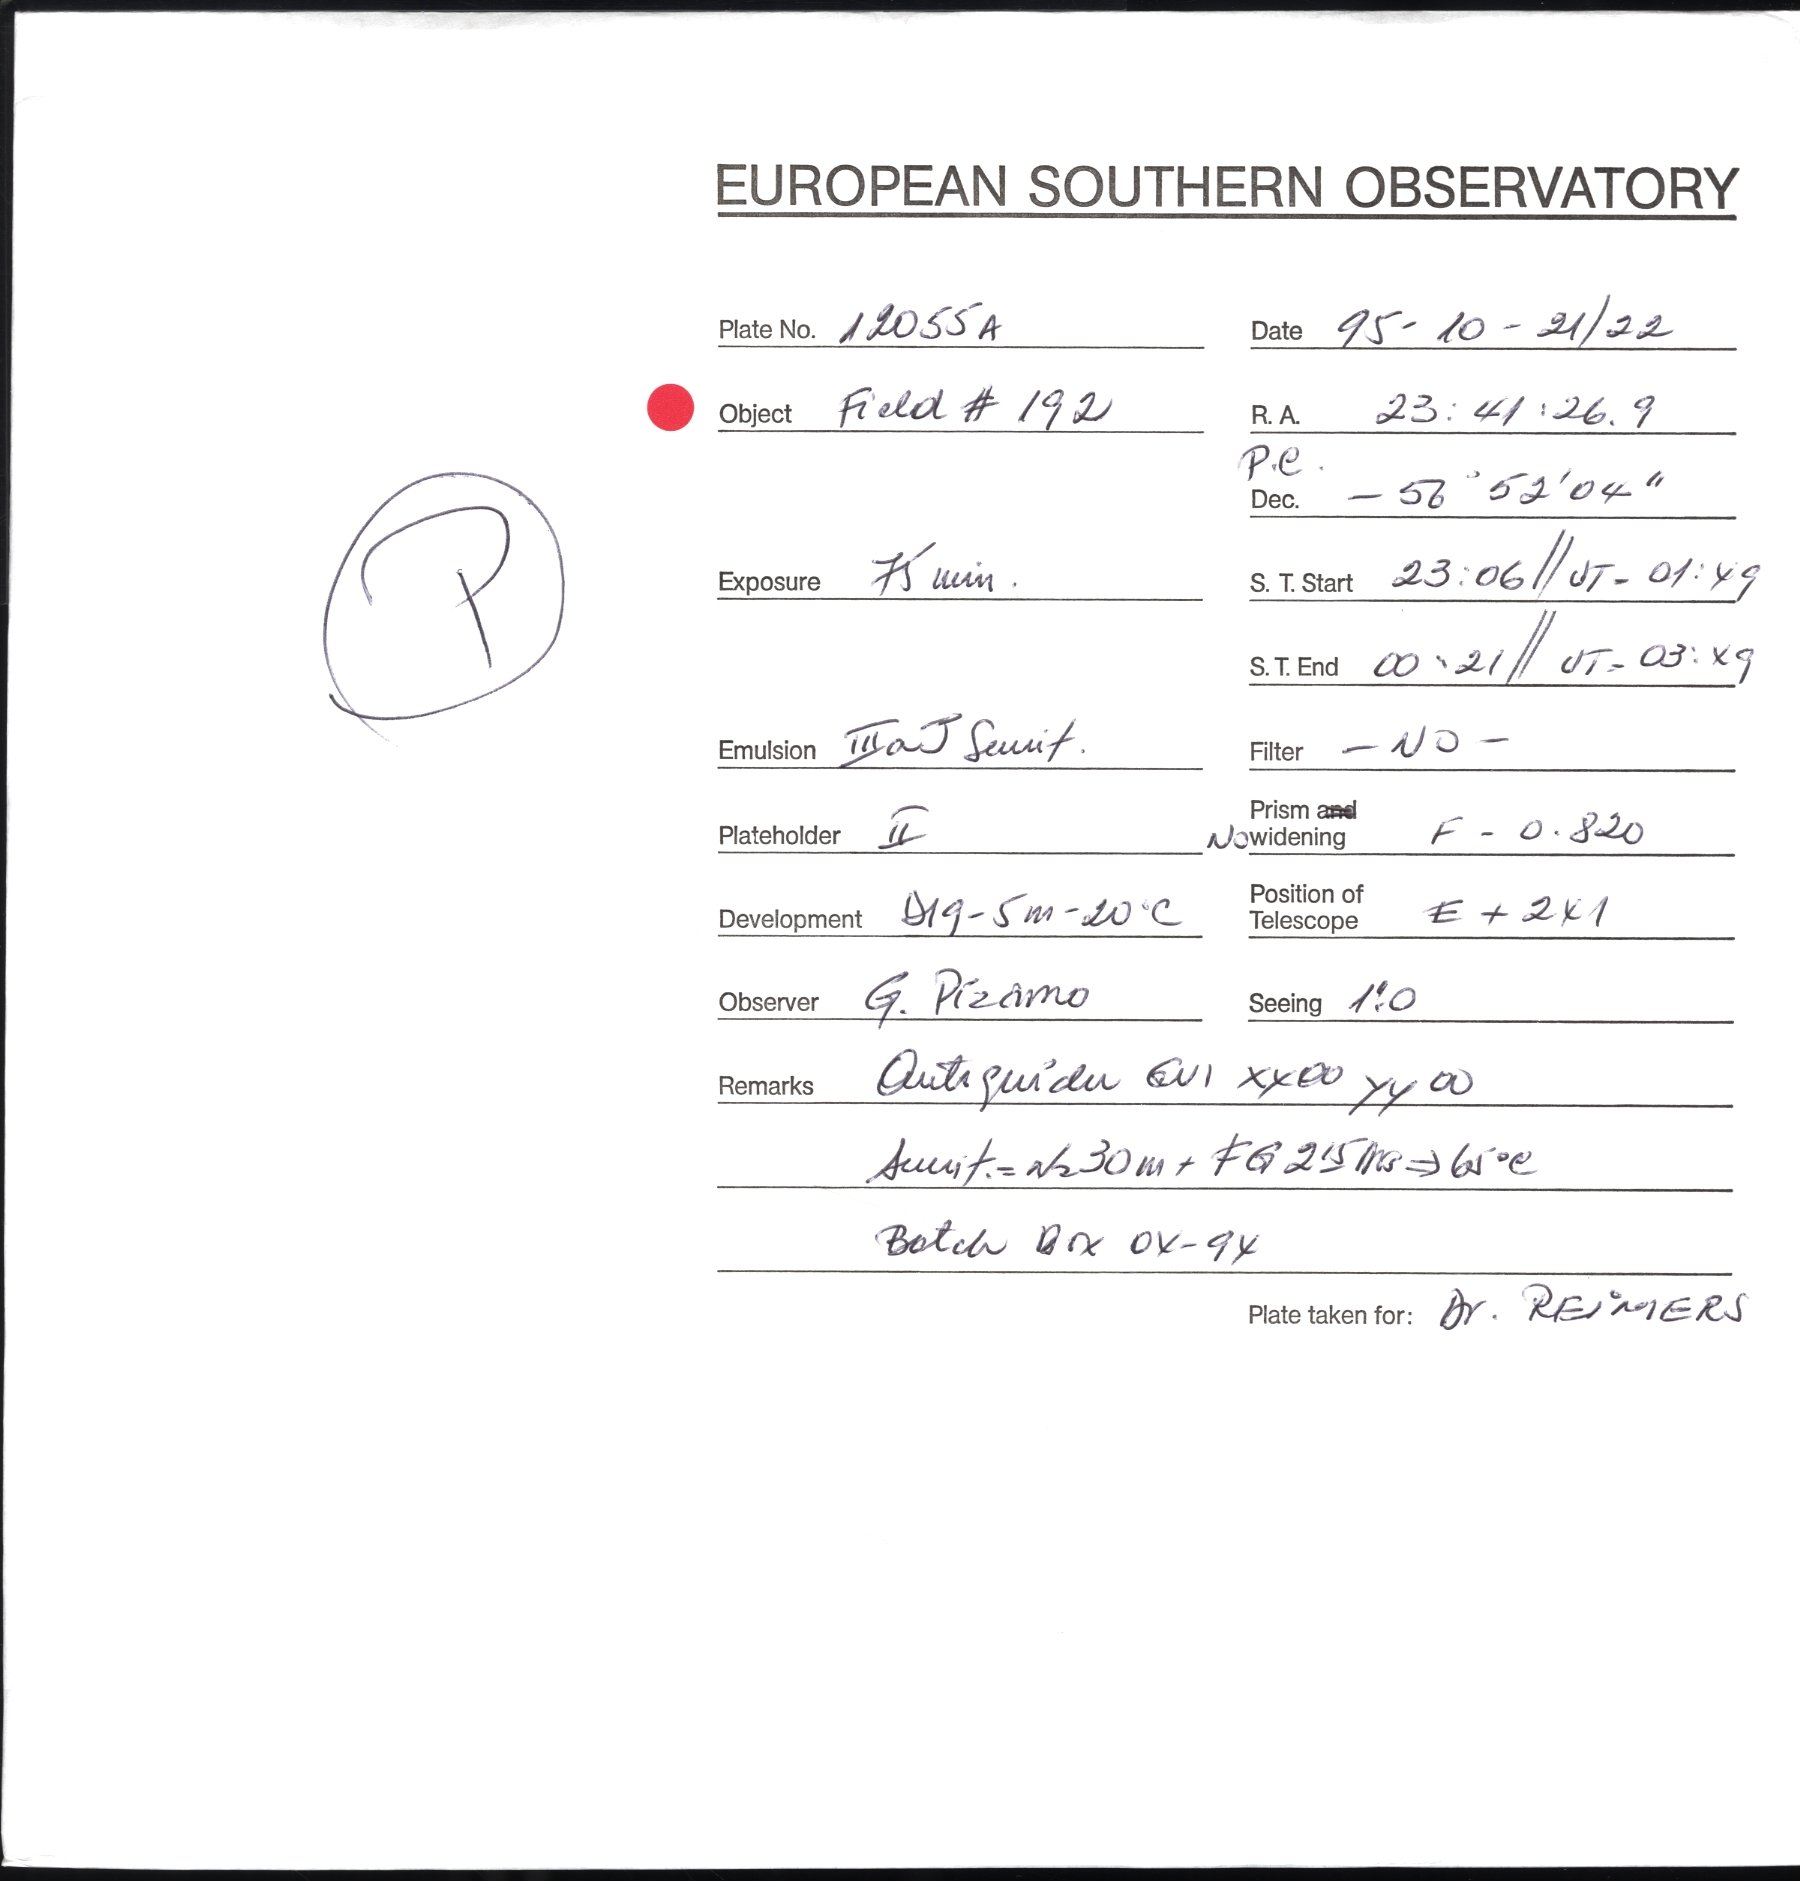 EUROPEAN SOUTHERN OBSERVATORY
Plate No. 12055A
Date 95-10-21/22
Object Field # 192
R. A. 23:41:26.9
P.C.
Dec. - 56° 52' 04"
P
Exposure 75 min.
S. T. Start 23:06 // UT- 01:49
S. T. End 00:21 // UT- 03:49
Emulsion IIIaJ Sensit.
Filter - NO -
Plateholder II
Prism and
No widening F - 0.820
Development D19-5m-20°C
Position of
Telescope E + 241
Observer G. Pizarro
Seeing 1".0
Remarks Autoguider GV1 XX00 YY00
Sensit. = N2 30m + FG 215 Ms => 65°C
Batch Box 04-94
Plate taken for: Dr. REIMERS